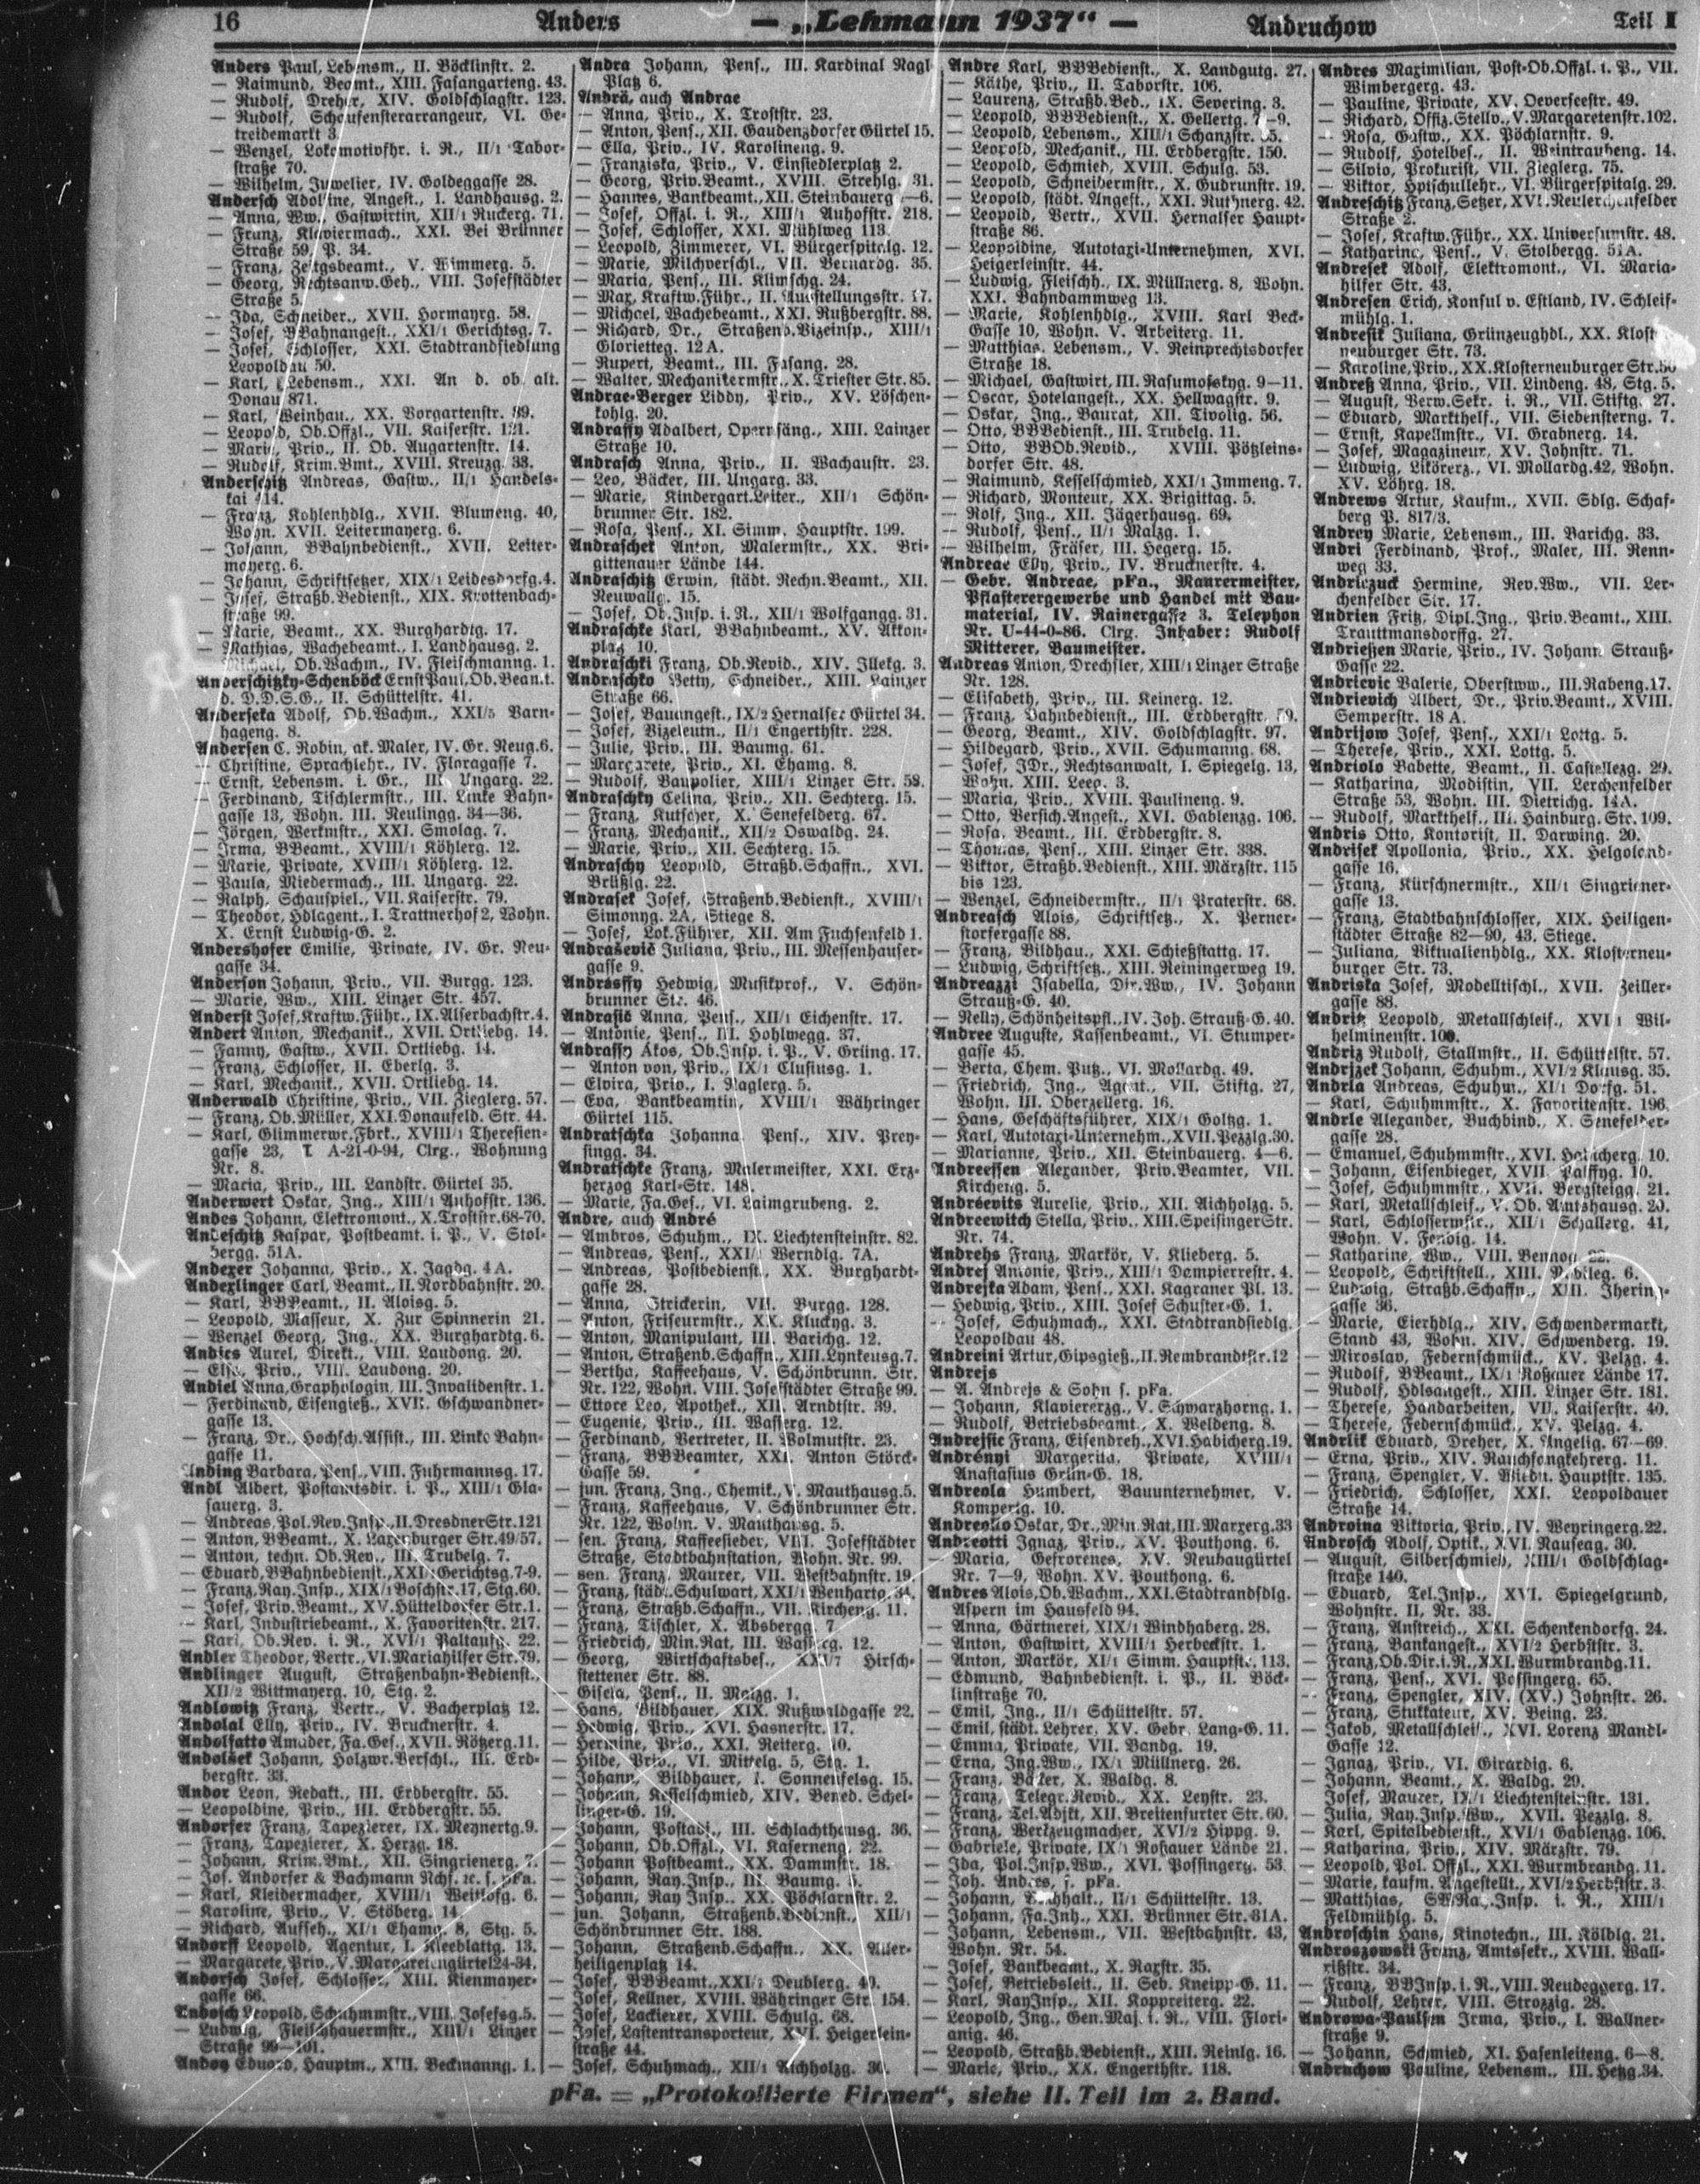 16
Anders
— „Lehmann 1937“ —
Andruchow
Teil I
Anders Paul, Lebensm., II. Böcklinstr. 2.
— Raimund, Beamt., XIII. Fasangarteng. 43.
— Rudolf, Dreher, XIV. Goldschlagstr. 123.
— Rudolf, Schaufensterarrangeur, VI. Ge-
treidemarkt 3.
— Wenzel, Lokomotivfhr. i. R., II/1 Tabor-
straße 70.
— Wilhelm, Juwelier, IV. Goldeggasse 28.
Andersch Adolfine, Angest., I. Landhausg. 2.
— Anna, Ww., Gastwirtin, XII/1 Ruckerg. 71.
— Franz, Klaviermach., XXI. Bei Brünner
Straße 59, P. 34.
— Franz, Zeitgsbeamt., V. Wimmerg. 5.
— Georg, Rechtsanw.Geh., VIII. Josefstädter
Straße 5.
— Ida, Schneider., XVII. Hormayrg. 58.
— Josef, BBahnangest., XXI/1 Gerichtsg. 7.
— Josef, Schlosser, XXI. Stadtrandsiedlung
Leopoldau 50.
— Karl, Lebensm., XXI. An d. ob. alt.
Donau 871.
— Karl, Weinhau., XX. Vorgartenstr. 89.
— Leopold, Ob.Offzl., VII. Kaiserstr. 121.
— Marie, Priv., II. Ob. Augartenstr. 14.
— Rudolf, Krim.Bmt., XVIII. Kreuzg. 33.
Anderschitz Andreas, Gastw., II/1 Handels-
kai 414.
— Franz, Kohlenhdlg., XVII. Blumeng. 40,
Wohn. XVII. Leitermayerg. 6.
— Johann, BBahnbedienst., XVII. Leiter-
mayerg. 6.
— Johann, Schriftsetzer, XIX/1 Leidesdorfg. 4.
— Josef, Straßb.Bedienst., XIX. Krottenbach-
straße 99.
— Marie, Beamt., XX. Burghardtg. 17.
— Mathias, Wachebeamt., I. Landhausg. 2.
— Michael, Ob.Wachm., IV. Fleischmanng. 1.
Anderschitzky-Schenböck Ernst Paul, Ob.Beamt.
d. D.D.S.G., II. Schüttelstr. 41.
Anderseka Adolf, Ob.Wachm., XXI/5 Varn-
hageng. 8.
Andersen C. Robin, ak. Maler, IV. Gr. Neug. 6.
— Christine, Sprachlehr., IV. Floragasse 7.
— Ernst, Lebensm. i. Gr., III. Ungarg. 22.
— Ferdinand, Tischlermstr., III. Linke Bahn-
gasse 13, Wohn. III. Neulingg. 34—36.
— Jörgen, Werkmstr., XXI. Smolag. 7.
— Irma, BBeamt., XVIII/1 Köhlerg. 12.
— Marie, Private, XVIII/1 Köhlerg. 12.
— Paula, Miedermach., III. Ungarg. 22.
— Ralph, Schauspiel., VII. Kaiserstr. 79.
— Theodor, Hdlagent., I. Trattnerhof 2, Wohn.
X. Ernst Ludwig-G. 2.
Andershofer Emilie, Private, IV. Gr. Neu-
gasse 34.
Anderson Johann, Priv., VII. Burgg. 123.
— Marie, Ww., XIII. Linzer Str. 457.
Anderst Josef, Kraftw.Führ., IX. Alserbachstr. 4.
Andert Anton, Mechanik., XVII. Ortliebg. 14.
— Fanny, Gastw., XVII. Ortliebg. 14.
— Franz, Schlosser, II. Eberlg. 3.
— Karl, Mechanik., XVII. Ortliebg. 14.
Anderwald Christine, Priv., VII. Zieglerg. 57.
— Franz, Ob.Müller, XXI. Donaufeld. Str. 44.
— Karl, Glimmerwr.Fbrk., XVIII/1 Theresien-
gasse 23, T. A-21-0-94, Clrg., Wohnung
Nr. 8.
— Maria, Priv., III. Landstr. Gürtel 35.
Anderwert Oskar, Ing., XIII/1 Auhofstr. 136.
Andes Johann, Elektromont., X. Troststr. 68-70.
Andeschitz Kaspar, Postbeamt. i. P., V. Stol-
bergg. 51A.
Andexer Johanna, Priv., X. Jagdg. 4A.
Andexlinger Carl, Beamt., II. Nordbahnstr. 20.
— Karl, BBBeamt., II. Aloisg. 5.
— Leopold, Masseur, X. Zur Spinnerin 21.
— Wenzel Georg, Ing., XX. Burghardtg. 6.
Andics Aurel, Direkt., VIII. Laudong. 20.
— Else, Priv., VIII. Laudong. 20.
Andiel Anna, Graphologin, III. Invalidenstr. 1.
— Ferdinand, Eisengieß., XVII. Gschwandner-
gasse 13.
— Franz, Dr., Hochsch.Assist., III. Linke Bahn-
gasse 11.
Anding Barbara, Pens., VIII. Fuhrmannsg. 17.
Andl Albert, Postamtsdir. i. P., XIII/1 Gla-
sauerg. 3.
— Andreas, Pol.Rev.Insp., II. Dresdner Str. 121
— Anton, BBeamt., X. Laxenburger Str. 49/57.
— Anton, techn. Ob.Rev., III. Trubelg. 7.
— Eduard, BBahnbedienst., XXI. Gerichtsg. 7-9.
— Franz, Ray.Insp., XIX/1 Boschstr. 17, Stg. 60.
— Josef, Priv.Beamt., XV. Hütteldorfer Str. 1.
— Karl, Industriebeamt., X. Favoritenstr. 217.
— Karl, Ob.Rev. i. R., XVI/1 Paltaufg. 22.
Andler Theodor, Vertr., VI. Mariahilfer Str. 79.
Andlinger August, Straßenbahn-Bedienst.,
XII/2 Wittmayerg. 10, Stg. 2.
Andlowitz Franz, Vertr., V. Bacherplatz 12.
Andolal Elly, Priv., IV. Brucknerstr. 4.
Andolfatto Amader, Fa.Ges., XVII. Rötzerg. 11.
Andolšek Johann, Holzwr.Verschl., III. Erd-
bergstr. 33.
Andor Leon, Redakt., III. Erdbergstr. 55.
— Leopoldine, Priv., III. Erdbergstr. 55.
Andorfer Franz, Tapezierer, IX. Meynertg. 9.
— Franz, Tapezierer, X. Herzg. 18.
— Johann, Krim.Bmt., XII. Singrienerg. 7.
— Jos. Andorfer & Bachmann Nchf. ɾc. s. pFa.
— Karl, Kleidermacher, XVIII/1 Weitlofg. 6.
— Karoline, Priv., V. Stöberg. 14.
— Richard, Aufseh., XI/1 Ehamg. 8, Stg. 5.
Andorff Leopold, Agentur, I. Kleeblattg. 13.
— Margarete, Priv., V. Margaretengürtel 24-34.
Andorsch Josef, Schlosser, XIII. Kienmayer-
gasse 66.
Andosch Leopold, Schuhmmstr., VIII. Josefsg. 5.
— Ludwig, Fleischhauermstr., XIII/1 Linzer
Straße 99—101.
Andoy Eduard, Hauptm., XIII. Beckmanng. 1.
Andra Johann, Pens., III. Kardinal Nagl
Platz 6.
Andrä, auch Andrae
— Anna, Priv., X. Troststr. 23.
— Anton, Pens., XII. Gaudenzdorfer Gürtel 15.
— Ella, Priv., IV. Karolineng. 9.
— Franziska, Priv., V. Einsiedlerplatz 2.
— Georg, Priv.Beamt., XVIII. Strehlg. 31.
— Hannes, Bankbeamt., XII. Steinbauerg. —6.
— Josef, Offzl. i. R., XIII/1 Auhofstr. 218.
— Josef, Schlosser, XXI. Mühlweg 113.
— Leopold, Zimmerer, VI. Bürgerspitalg. 12.
— Marie, Milchverschl., VII. Bernardg. 35.
— Maria, Pens., III. Klimschg. 24.
— Max, Kraftw.Führ., II. Ausstellungsstr. 17.
— Michael, Wachebeamt., XXI. Rußbergstr. 88.
— Richard, Dr., Straßenb.Vizeinsp., XIII/1
Glorietteg. 12A.
— Rupert, Beamt., III. Fasang. 28.
— Walter, Mechanikermstr., X. Triester Str. 85.
Andrae-Berger Liddy, Priv., XV. Löschen-
kohlg. 20.
Andrassy Adalbert, Opernsäng., XIII. Lainzer
Straße 10.
Andrasch Anna, Priv., II. Wachaustr. 23.
— Leo, Bäcker, III. Ungarg. 33.
— Marie, Kindergart.Leiter., XII/1 Schön-
brunner Str. 182.
— Rosa, Pens., XI. Simm. Hauptstr. 199.
Andraschek Anton, Malermstr., XX. Bri-
gittenauer Lände 144.
Andraschitz Erwin, städt. Rechn.Beamt., XII.
Neuwallg. 15.
— Josef, Ob.Insp. i. R., XII/1 Wolfgangg. 31.
Andraschke Karl, BBahnbeamt., XV. Akkon-
platz 10.
Andraschki Franz, Ob.Revid., XIV. Illekg. 3.
Andraschko Betty, Schneider., XIII. Lainzer
Straße 66.
— Josef, Bauangest., IX/2 Hernalser Gürtel 34.
— Josef, Vizeleutn., II/1 Engerthstr. 228.
— Julie, Priv., III. Baumg. 61.
— Margarete, Priv., XI. Ehamg. 8.
— Rudolf, Baupolier, XIII/1 Linzer Str. 58.
Andraschky Celina, Priv., XII. Sechterg. 15.
— Franz, Kutscher, X. Senefelderg. 67.
— Franz, Mechanik., XII/2 Oswaldg. 24.
— Marie, Priv., XII. Sechterg. 15.
Andraschy Leopold, Straßb.Schaffn., XVI.
Brüßlg. 22.
Andrasek Josef, Straßenb.Bedienst., XVIII/1
Simonyg. 2A, Stiege 8.
— Josef, Lok.Führer, XII. Am Fuchsenfeld 1.
Andrašević Juliana, Priv., III. Messenhauser-
gasse 9.
Andrássfy Hedwig, Musikprof., V. Schön-
brunner Str. 46.
Andrasić Anna, Pens., XII/1 Eichenstr. 17.
— Antonie, Pens., III. Hohlwegg. 37.
Andrassy Akos, Ob.Insp. i. P., V. Grüng. 17.
— Anton von, Priv., IX/1 Clusiusg. 1.
— Elvira, Priv., I. Naglerg. 5.
— Eva, Bankbeamtin, XVIII/1 Währinger
Gürtel 115.
Andratschka Johanna, Pens., XIV. Prey-
singg. 34.
Andratschke Franz, Malermeister, XXI. Erz-
herzog Karl-Str. 148.
— Marie, Fa.Ges., VI. Laimgrubeng. 2.
Andre, auch André
— Ambros, Schuhm., IX. Liechtensteinstr. 82.
— Andreas, Pens., XXI/1 Werndlg. 7A.
— Andreas, Postbedienst., XX. Burghardt-
gasse 28.
— Anna, Strickerin, VII. Burgg. 128.
— Anton, Friseurmstr., XX. Kluckyg. 3.
— Anton, Manipulant, III. Barichg. 12.
— Anton, Straßenb.Schaffn., XIII. Lynkeusg. 7.
— Bertha, Kaffeehaus, V. Schönbrunn. Str.
Nr. 122, Wohn. VIII. Josefstädter Straße 99.
— Ettore Leo, Apothek., XII. Arndtstr. 39.
— Eugenie, Priv., III. Wasserg. 12.
— Ferdinand, Vertreter, II. Wolmutstr. 23.
— Franz, BBBeamter, XXI. Anton Störck-
Gasse 59.
— jun. Franz, Ing., Chemik., V. Mauthausg. 5.
— Franz, Kaffeehaus, V. Schönbrunner Str.
Nr. 122, Wohn. V. Mauthausg. 5.
— sen. Franz, Kaffeesieder, VIII. Josefstädter
Straße, Stadtbahnstation, Wohn. Nr. 99.
— sen. Franz, Maurer, VII. Westbahnstr. 19.
— Franz, städt. Schulwart, XXI/1 Wenhartg. 34.
— Franz, Straßb.Schaffn., VII. Kircheng. 11.
— Franz, Tischler, X. Absbergg. 7.
— Friedrich, Min.Rat, III. Wasserg. 12.
— Georg, Wirtschaftsbes., XXI/7 Hirsch-
stettener Str. 88.
— Gisela, Pens., II. Malzg. 1.
— Hans, Bildhauer, XIX. Nußwaldgasse 22.
— Hedwig, Priv., XVI. Hasnerstr. 17.
— Hermine, Priv., XXI. Reiterg. 10.
— Hilde, Priv., VI. Mittelg. 5, Stg. 1.
— Johann, Bildhauer, I. Sonnenfelsg. 15.
— Johann, Kesselschmied, XIV. Bened. Schel-
linger-G. 19.
— Johann, Postadj., III. Schlachthausg. 36.
— Johann, Ob.Offzl., VI. Kaserneng. 22.
— Johann Postbeamt., XX. Dammstr. 18.
— Johann, Ray.Insp., III. Baumg.
— Johann, Ray.Insp., XX. Pöchlarnstr. 2.
— jun. Johann, Straßenb.Bedienst., XII/1
Schönbrunner Str. 188.
— Johann, Straßenb.Schaffn., XX. Aller-
heiligenplatz 14.
— Josef, BBBeamt., XXI/2 Deublerg. 40.
— Josef, Kellner, XVIII. Währinger Str. 154.
— Josef, Lackierer, XVIII. Schulg. 68.
— Josef, Lastentransporteur, XVI. Heigerlein-
straße 44.
— Josef, Schuhmach., XII/1 Aichholzg. 30.
Andre Karl, BBBedienst., X. Landgutg. 27.
— Käthe, Priv., II. Taborstr. 106.
— Laurenz, Straßb.Bed., IX. Severing. 3.
— Leopold, BBBedienst., X. Gellertg. 7—9.
— Leopold, Lebensm., XIII/1 Schanzstr.
— Leopold, Mechanik., III. Erdbergstr. 150.
— Leopold, Schmied, XVIII. Schulg. 53.
— Leopold, Schneidermstr., X. Gudrunstr. 19.
— Leopold, städt. Angest., XXI. Ruthnerg. 42.
— Leopold, Vertr., XVII. Hernalser Haupt-
straße 86.
— Leopoldine, Autotaxi-Unternehmen, XVI.
Heigerleinstr. 44.
— Ludwig, Fleischh., IX. Müllnerg. 8, Wohn.
XXI. Bahndammweg 13.
— Marie, Kohlenhdlg., XVIII. Karl Beck-
Gasse 10, Wohn. V. Arbeiterg. 11.
— Matthias, Lebensm., V. Reinprechtsdorfer
Straße 18.
— Michael, Gastwirt, III. Rasumofskyg. 9—11.
— Oscar, Hotelangest., XX. Hellwagstr. 9.
— Oskar, Ing., Baurat, XII. Tivolig. 56.
— Otto, BBBedienst., III. Trubelg. 11.
— Otto, BBOb.Revid., XVIII. Pötzleins-
dorfer Str. 48.
— Raimund, Kesselschmied, XXI/1 Immeng. 7.
— Richard, Monteur, XX. Brigittag. 5.
— Rolf, Ing., XII. Jägerhausg. 69.
— Rudolf, Pens., II/1 Malzg. 1.
— Wilhelm, Fräser, III. Hegerg. 15.
Andreae Elly, Priv., IV. Brucknerstr. 4.
— Gebr. Andreae, pFa., Maurermeister,
Pflasterergewerbe und Handel mit Bau-
material, IV. Rainergasse 3. Telephon
Nr. U-44-0-86. Clrg. Inhaber: Rudolf
Mitterer, Baumeister.
Andreas Anton, Drechsler, XIII/1 Linzer Straße
Nr. 128.
— Elisabeth, Priv., III. Keinerg. 12.
— Franz, Bahnbedienst., III. Erdbergstr. 59.
— Georg, Beamt., XIV. Goldschlagstr. 97.
— Hildegard, Priv., XVII. Schumanng. 68.
— Josef, JDr., Rechtsanwalt, I. Spiegelg. 13,
Wohn. XIII. Leeg. 3.
— Maria, Priv., XVIII. Paulineng. 9.
— Otto, Versich.Angest., XVI. Gablenzg. 106.
— Rosa, Beamt., III. Erdbergstr. 8.
— Thomas, Pens., XIII. Linzer Str. 338.
— Viktor, Straßb.Bedienst., XIII. Märzstr. 115
bis 123.
— Wenzel, Schneidermstr., II/1 Praterstr. 68.
Andreasch Alois, Schriftsetz., X. Perner-
storfergasse 88.
— Franz, Bildhau., XXI. Schießstattg. 17.
— Ludwig, Schriftsetz., XIII. Reiningerweg 19.
Andreazzi Isabella, Dir.Ww., IV. Johann
Strauß-G. 40.
— Nelly, Schönheitspfl., IV. Joh. Strauß-G. 40.
Andree Auguste, Kassenbeamt., VI. Stumper-
gasse 45.
— Berta, Chem. Putz., VI. Mollardg. 49.
— Friedrich, Ing., Agent., VII. Stiftg. 27,
Wohn. III. Oberzellerg. 16.
— Hans, Geschäftsführer, XIX/1 Goltzg. 1.
— Karl, Autotaxi-Unternehm., XVII. Pezzlg. 30.
— Marianne, Priv., XII. Steinbauerg. 4—6.
Andreessen Alexander, Priv.Beamter, VII.
Kircheng. 5.
Andréevits Aurelie, Priv., XII. Aichholzg. 5.
Andreewitch Stella, Priv., XIII. Speisinger Str.
Nr. 74.
Andrehs Franz, Markör, V. Klieberg. 5.
Andrej Antonie, Priv., XIII/1 Dampierrestr. 4.
Andrejka Adam, Pens., XXI. Kagraner Pl. 13.
— Hedwig, Priv., XIII. Josef Schuster-G. 1.
— Josef, Schuhmach., XXI. Stadtrandsiedlg.
Leopoldau 48.
Andreini Artur, Gipsgieß., II. Rembrandtstr. 12
Andrejs
— A. Andrejs & Sohn s. pFa.
— Johann, Klaviererzg., V. Schwarzhorng. 1.
— Rudolf, Betriebsbeamt., X. Weldeng. 8.
Andrejsic Franz, Eisendreh., XVI. Habicherg. 19.
Andrényi Margerita, Private, XVIII/1
Anastasius Grün-G. 18.
Andreola Humbert, Bauunternehmer, V.
Komperg. 10.
Oskar, Dr., Min.Rat, III. Marxerg. 33
Andreotti Ignaz, Priv., XV. Pouthong. 6.
— Maria, Gefrorenes, XV. Neubaugürtel
Nr. 7—9, Wohn. XV. Pouthong. 6.
Andres Alois, Ob.Wachm., XXI. Stadtrandsdlg.
Aspern im Hausfeld 94.
— Anna, Gärtnerei, XIX/1 Windhaberg. 28.
— Anton, Gastwirt, XVIII/1 Herbeckstr. 1.
— Anton, Markör, XI/1 Simm. Hauptstr. 113.
— Edmund, Bahnbedienst. i. P., II. Böck-
linstraße 70.
— Emil, Ing., II/1 Schüttelstr. 57.
— Emil, städt. Lehrer, XV. Gebr. Lang-G. 11.
— Emma, Private, VII. Bandg. 19.
— Erna, Ing.Ww., IX/1 Müllnerg. 26.
— Franz, Bäcker, X. Waldg. 8.
— Franz, Telegr.Revid., XX. Leystr. 23.
— Franz, Tel.Adjkt, XII. Breitenfurter Str. 60.
— Franz, Werkzeugmacher, XVI/2 Hippg. 9.
— Gabriele, Private, IX/1 Roßauer Lände 21.
— Ida, Pol.Insp.Ww., XVI. Possingerg. 53.
— Joh. Andres, s. pFa.
— Johann, Buchhalt., II/1 Schüttelstr. 13.
— Johann, Fa.Inh., XXI. Brünner Str. 31A.
— Johann, Lebensm., VII. Westbahnstr. 43,
Wohn. Nr. 54.
— Josef, Bankbeamt., X. Raxstr. 35.
— Josef, Betriebsleit., II. Seb. Kneipp-G. 11.
— Karl, RayInsp., XII. Koppreiterg. 22.
— Leopold, Ing., Gen.Maj. i. R., VIII. Flori-
anig. 46.
— Leopold, Straßb.Bedienst., XIII. Reinlg. 16.
— Marie, Priv., XX. Engerthstr. 118.
Andres Maximilian, Post-Ob.Offzl. i. P., VII.
Wimbergerg. 43.
— Pauline, Private, XV. Oeverseestr. 49.
— Richard, Offiz.Stellv., V. Margaretenstr. 102.
— Rosa, Gastw., XX. Pöchlarnstr. 9.
— Rudolf, Hotelbes., II. Weintraubeng. 14.
— Silvio, Prokurist, VII. Zieglerg. 75.
— Viktor, Hptschullehr., VI. Bürgerspitalg. 29.
Andreschitz Franz, Setzer, XVI. Neulerchenfelder
Straße 2.
— Josef, Kraftw.Führ., XX. Universumstr. 48.
— Katharine, Pens., V. Stolbergg. 51A.
Andresek Adolf, Elektromont., VI. Maria-
hilfer Str. 43.
Andresen Erich, Konsul v. Estland, IV. Schleif-
mühlg. 1.
Andresik Juliana, Grünzeughdl., XX. Klost
neuburger Str. 73.
— Karoline, Priv., XX. Klosterneuburger Str.
Andreß Anna, Priv., VII. Lindeng. 48, Stg. 5.
— August, Verw.Sekr. i. R., VII. Stiftg. 27.
— Eduard, Markthelf., VII. Siebensterng. 7.
— Ernst, Kapellmstr., VI. Grabnerg. 14.
— Josef, Magazineur, XV. Johnstr. 71.
— Ludwig, Likörerz., VI. Mollardg. 42, Wohn.
XV. Löhrg. 18.
Andrews Artur, Kaufm., XVII. Sdlg. Schaf-
berg P. 817/3.
Andrey Marie, Lebensm., III. Barichg. 33.
Andri Ferdinand, Prof., Maler, III. Renn-
weg 33.
Andriczuck Hermine, Rev.Ww., VII. Ler-
chenfelder Str. 17.
Andrien Fritz, Dipl.Ing., Priv.Beamt., XIII.
Trauttmansdorffg. 27.
Andrießen Marie, Priv., IV. Johann Strauß-
Gasse 22.
Andrievic Valerie, Oberstww., III. Rabeng. 17.
Andrievich Albert, Dr., Priv.Beamt., XVIII.
Semperstr. 18A.
Andrijow Josef, Pens., XXI/1 Lottg. 5.
— Therese, Priv., XXI. Lottg. 5.
Andriolo Babette, Beamt., II. Castellezg. 29.
— Katharina, Modistin, VII. Lerchenfelder
Straße 53, Wohn. III. Dietrichg. 14A.
— Rudolf, Markthelf., III. Hainburg. Str. 109.
Andris Otto, Kontorist, II. Darwing. 20.
Andrisek Apollonia, Priv., XX. Helgoland-
gasse 16.
— Franz, Kürschnermstr., XII/1 Singriener-
gasse 13.
— Franz, Stadtbahnschlosser, XIX. Heiligen-
städter Straße 82—90, 43. Stiege.
— Juliana, Viktualienhdlg., XX. Klosterneu-
burger Str. 73.
Andriska Josef, Modelltischl., XVII. Zeiller-
gasse 88.
Andritz Leopold, Metallschleif., XVI/1 Wil-
helminenstr. 100.
Andriz Rudolf, Stallmstr., II. Schüttelstr. 57.
Andrjzek Johann, Schuhm., XVI/2 Klausg. 35.
Andrla Andreas, Schuhm., XI/1 Dorfg. 51.
— Karl, Schuhmmstr., X. Favoritenstr. 196.
Andrle Alexander, Buchbind., X. Senefelder-
gasse 28.
— Emanuel, Schuhmmstr., XVI. Habicherg. 10.
— Johann, Eisenbieger, XVII. Palffyg. 10.
— Josef, Schuhmmstr., XVII. Bergsteigg. 21.
— Karl, Metallschleif., V. Ob. Amtshausg. 20.
— Karl, Schlossermstr., XII/1 Schallerg. 41,
Wohn. V. Fendig. 14.
— Katharine, Ww., VIII. Bennog. 22.
— Leopold, Schriftstell., XIII. Nobileg. 6.
— Ludwig, Straßb.Schaffn., XIII. Jhering-
gasse 36.
— Marie, Eierhdlg., XIV. Schwendermarkt,
Stand 43, Wohn. XIV. Schwenderg. 19.
— Miroslav, Federnschmück., XV. Pelzg. 4.
— Rudolf, BBeamt., IX/1 Roßauer Lände 17.
— Rudolf, Hdlsangest., XIII. Linzer Str. 181.
— Therese, Handarbeiten, VII. Kaiserstr. 40.
— Therese, Federnschmück., XV. Pelzg. 4.
Andrlik Eduard, Dreher, X. Angelig. 67—69.
— Erna, Priv., XIV. Rauchfangkehrerg. 11.
— Franz, Spengler, V. Wiedn. Hauptstr. 135.
— Friedrich, Schlosser, XXI. Leopoldauer
Straße 14.
Androina Viktoria, Priv., IV. Weyringerg. 22.
Androsch Adolf, Optik., XVI. Nauseag. 30.
— August, Silberschmied, XIII/1 Goldschlag-
straße 140.
— Eduard, Tel.Insp., XVI. Spiegelgrund,
Wohnstr. II, Nr. 33.
— Franz, Anstreich., XXI. Schenkendorfg. 24.
— Franz, Bankangest., XVI/2 Herbststr. 3.
— Franz, Ob.Dir. i. R., XXI. Wurmbrandg. 11.
— Franz, Pens., XVI. Possingerg. 65.
— Franz, Spengler, XIV. (XV.) Johnstr. 26.
— Franz, Stukkateur, XV. Being. 23.
— Jakob, Metallschleif., XVI. Lorenz Mandl-
Gasse 12.
— Ignaz, Priv., VI. Girardig. 6.
— Johann, Beamt., X. Waldg. 29.
— Josef, Maurer, IX/1 Liechtensteinstr. 131.
— Julia, Ray.Insp.Ww., XVII. Pezzlg. 8.
— Karl, Spitalbedienst., XVI/1 Gablenzg. 106.
— Katharina, Priv., XIV. Märzstr. 79.
— Leopold, Pol. Offzl., XXI. Wurmbrandg. 11.
— Marie, kaufm. Angestellt., XVI/2 Herbststr. 3.
— Matthias, SWRay.Insp. i. R., XIII/1
Feldmühlg. 5.
Androschin Hans, Kinotechn., III. Kölblg. 21.
Androszowski Franz, Amtssekr., XVIII. Wall-
rißstr. 34.
— Franz, BBInsp. i. R., VIII. Neudeggerg. 17.
— Rudolf, Lehrer, VIII. Strozzig. 28.
Androwa-Paulsen Irma, Priv., I. Wallner-
straße 9.
— Johann, Schmied, XI. Hasenleiteng. 6—8.
Andruchow Pauline, Lebensm., III. Hetzg. 34.
pFa. = „Protokollierte Firmen“, siehe II. Teil im 2. Band.